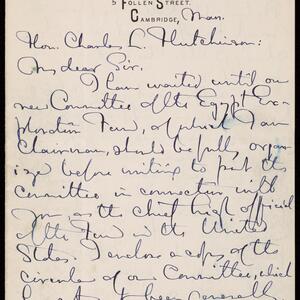 5 FOLLEN STREET.
CAMBRIDGE, Mass.
Hon. Charles L. Hutchinson:
My dear Sir:
I have waited until our
new Committee of the Egypt Ex-
ploration Fund, of which I am
Chairman, should be fully organ-
ized before writing to put the
Committee in connection with
you, as the chief high official
of the Fund in the United
States. I enclose a copy of the
circular of our Committee, which
has been generally